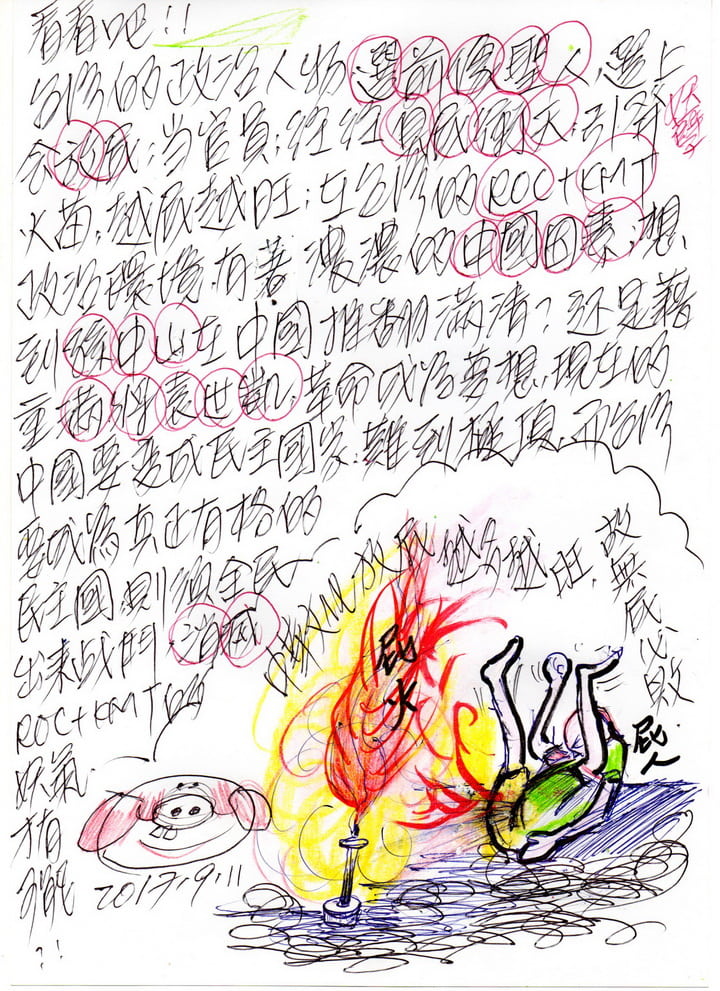 看看吧!!
台灣的政治人物選前像聖人,選上
會放屁;当官員;經經屁威衝天;引發
火苗,越屁越旺;在台灣的ROC+KMT
政治環境,有著濃濃的中國因素;想
到孫中山在中國推翻滿清?还是藉
重滿將袁世凱,革命成為夢想,現在的
中國要变成民主國家,難到極頂,而台灣
要成為真正有格的
民主國,則須全民
出來战鬥消滅
ROC+KMT的
妖氣
才有
可能
?!
放屁越多越旺,故無屁必敗
屁火
屁人
2017.9.11